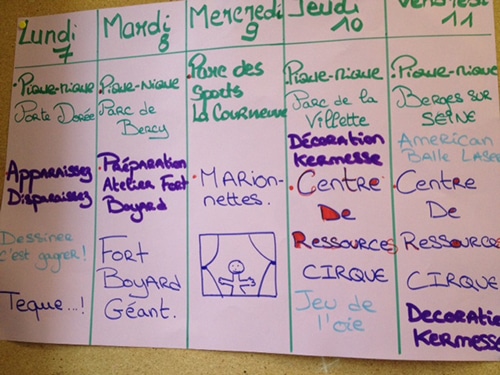 Lundi
7
Mardi
8
Mercredi
9
Jeudi
10
Vendredi
11
.Pique-nique
Porte Dorée
Apparaissez
Disparaissez
Dessinez
c'est gagner!
Teque...!
.Pique-Nique
Parc de
Bercy
.Préparation
Atelier Fort
Boyard
Fort
Boyard
Géant.
.Parc des
Sports
La Courneuve
.MARion-
nettes.
.Pique-nique
Parc de la
Villette
Décoration
Kermesse
.Centre
De
Ressources
CIRQUE
Jeu de
l'oie
.Pique-nique
Berges sur
SEINE
American
Balle Laser
.Centre
De
Ressources
CIRQUE
Decoration
Kermesse